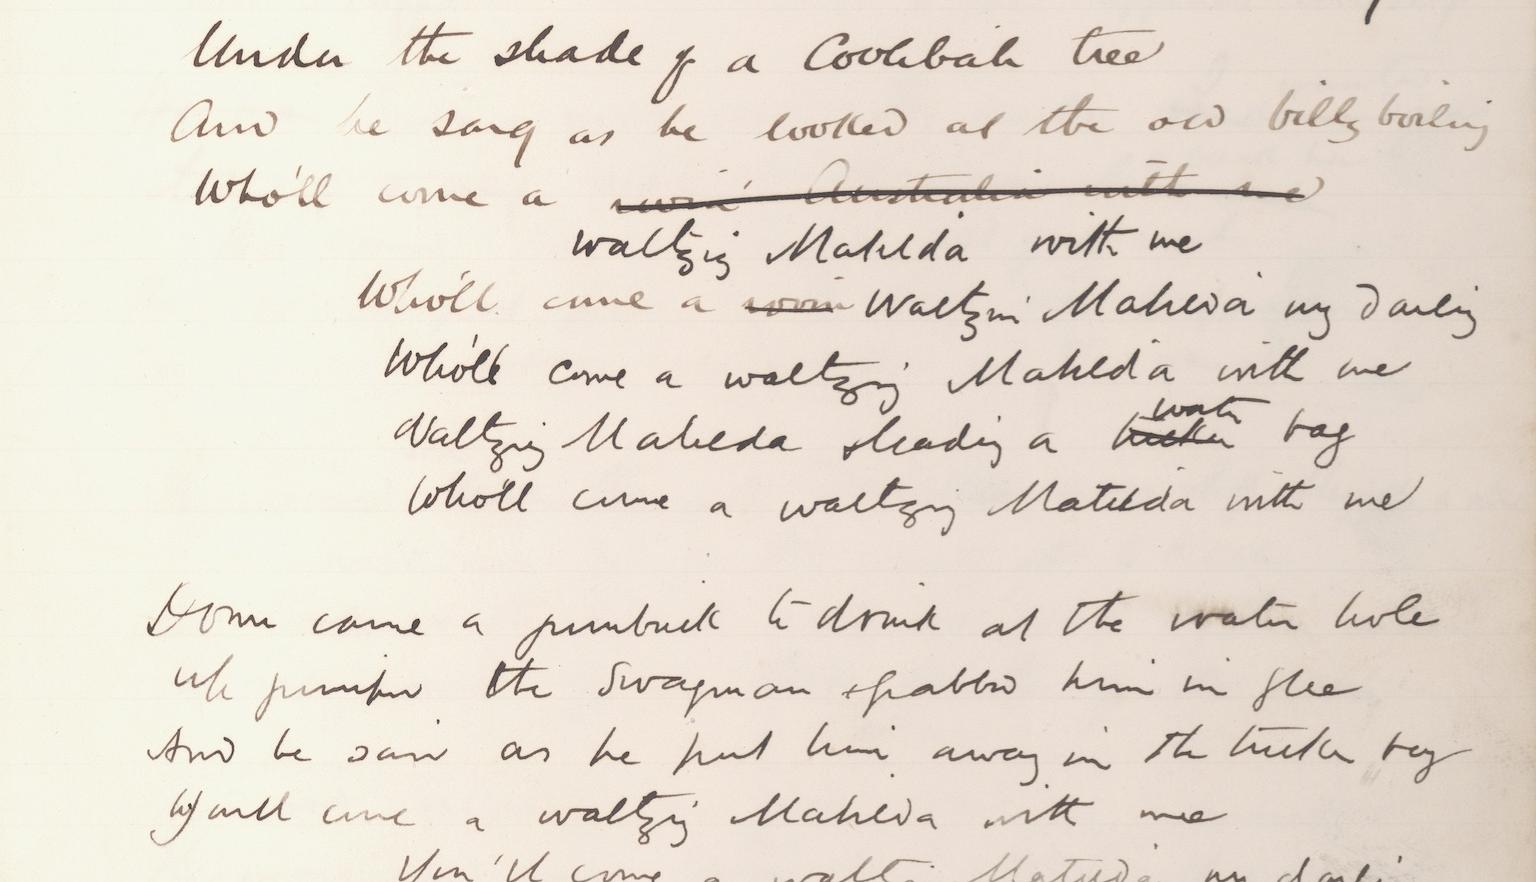 Under the shade of a Coolibah tree
And he sang as he looked at the old billy boiling
Who'll come a rovin' Australia with me
waltzing Matilda with me
Who'll come a rovin Waltzin' Matilda my darling
Who'll come a waltzing Matilda with me
Waltzing Matilda leading a tucker water bag
Who'll come a waltzing Matilda with me
Down came a jumbuck to drink at the water hole
Up jumped the Swagman grabbed him in glee
And he said as he put him away in the tucker bag
You'll come a waltzing Matilda with me
You'll come a waltzing Matilda my darling